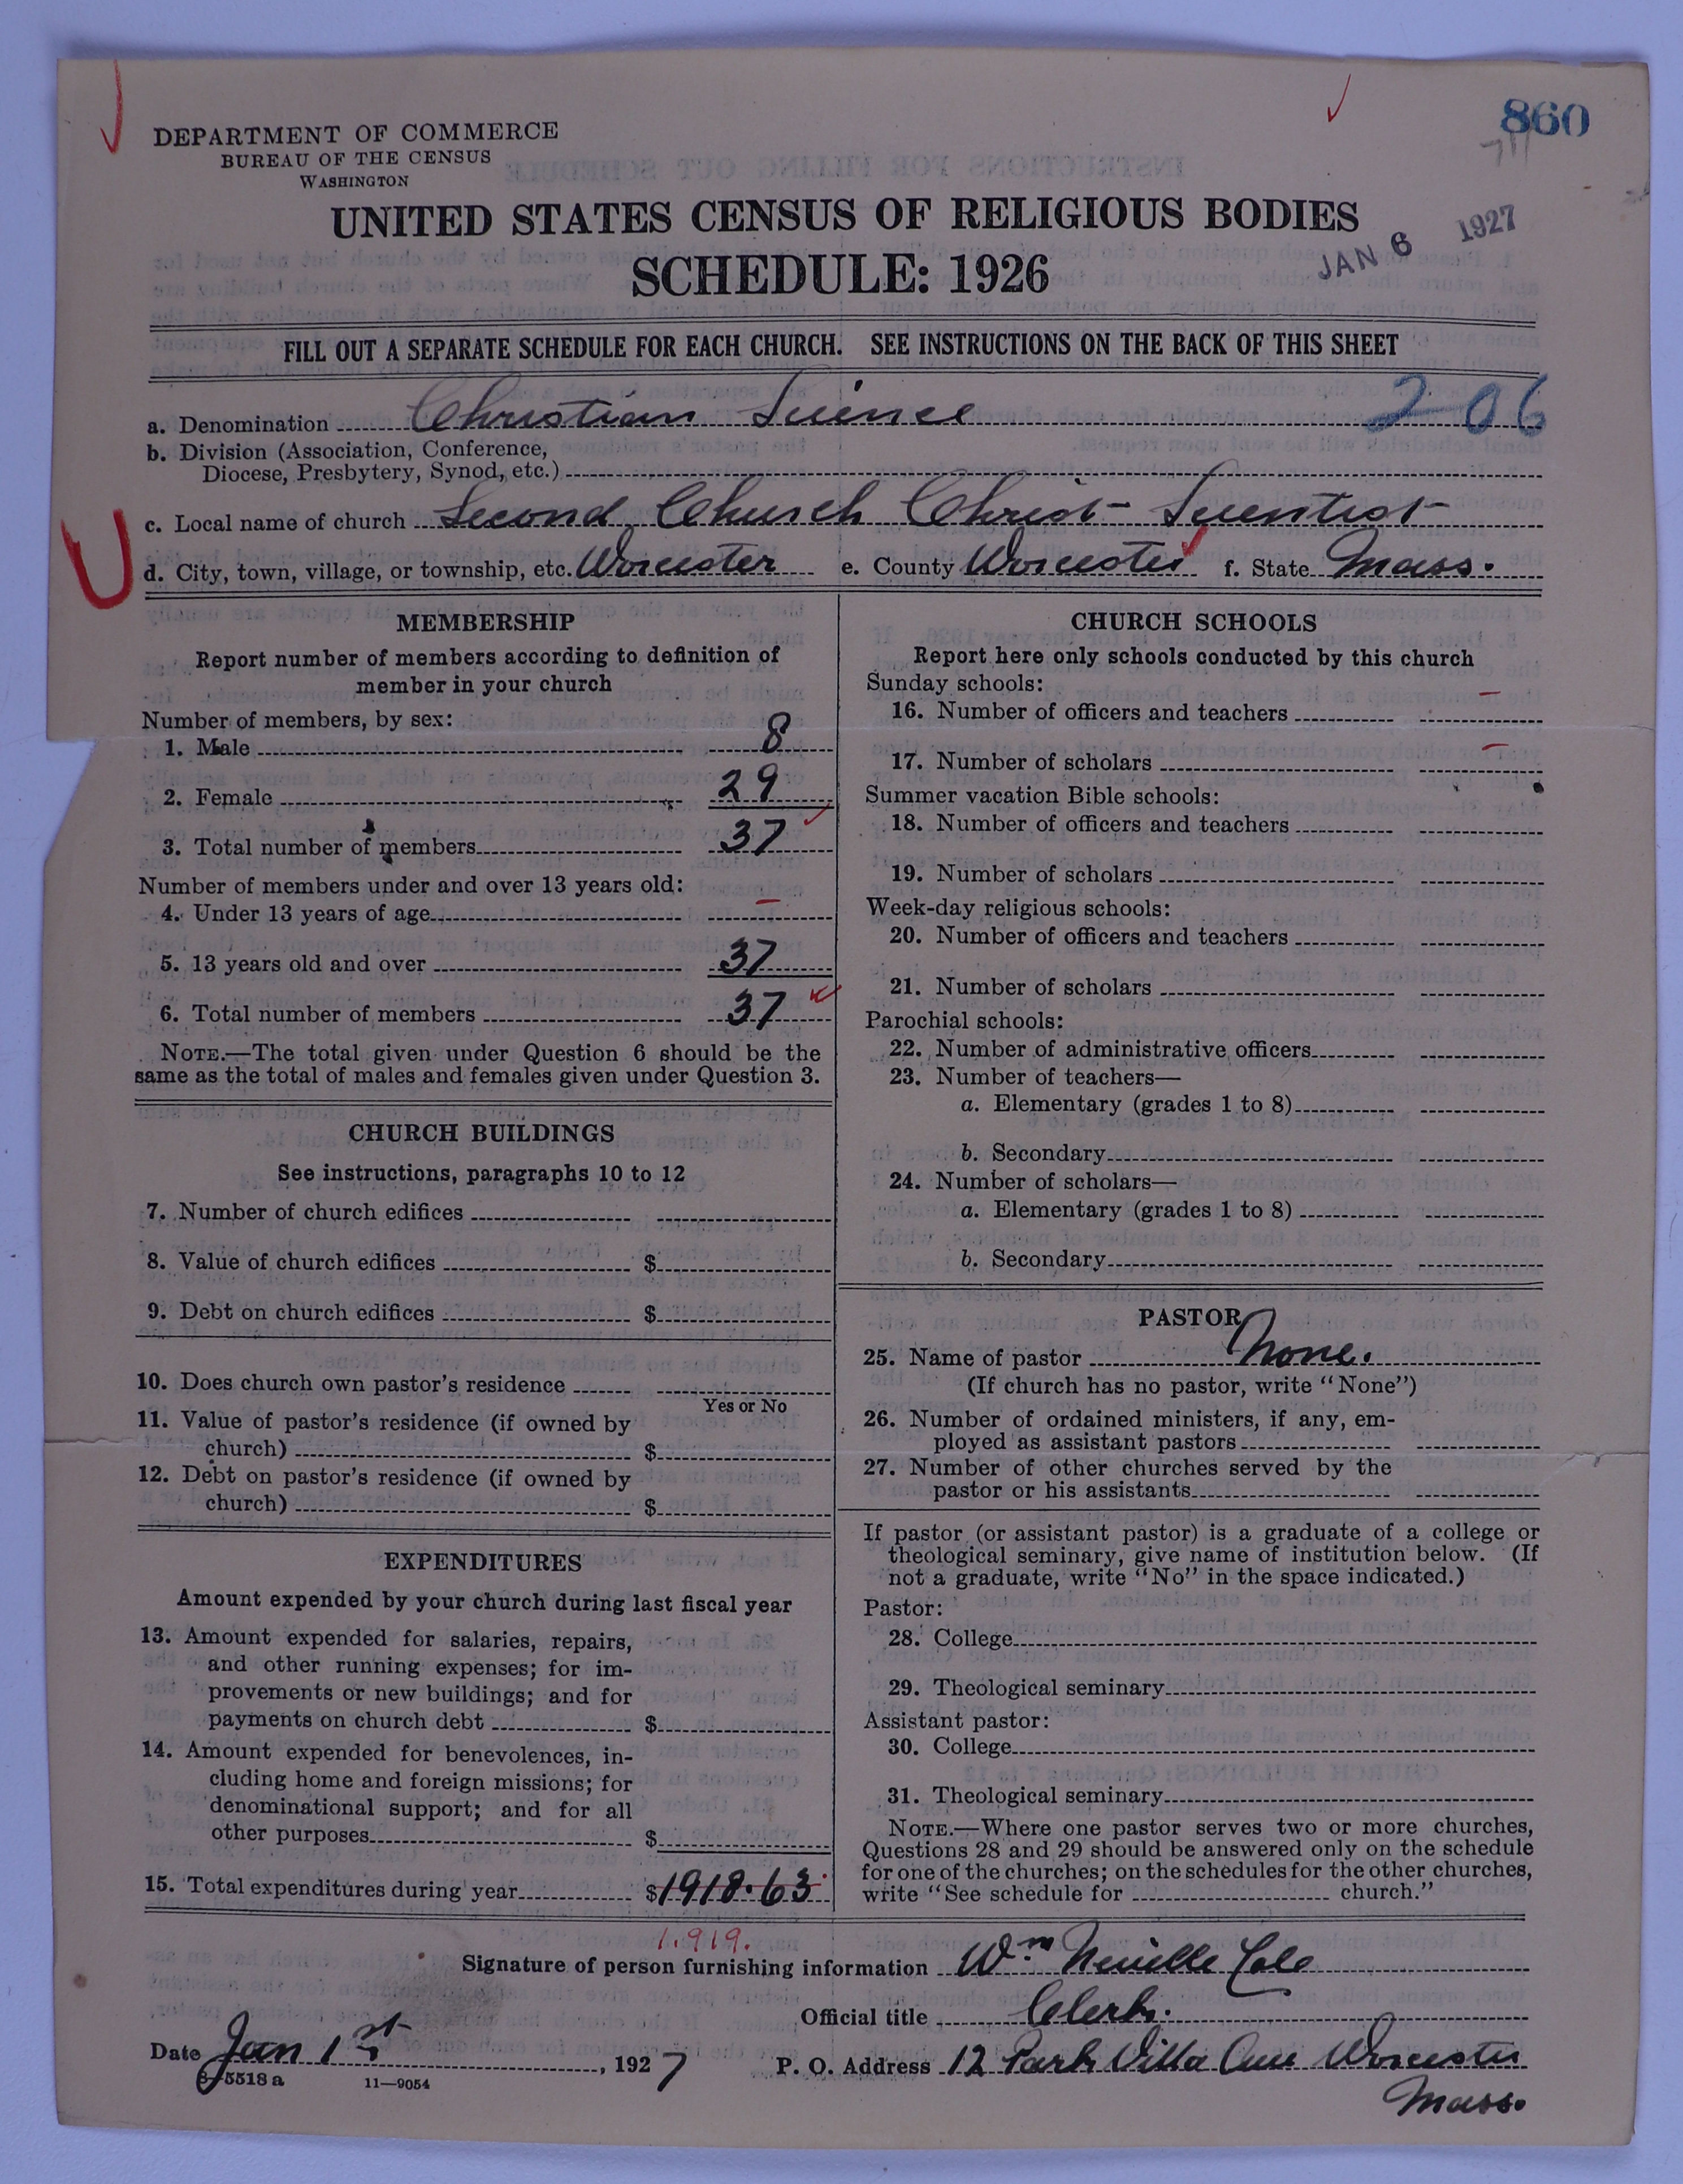 860
DEPARTMENT OF COMMERCE
BUREAU OF THE CENSUS
WASHINGTON
UNITED STATES CENSUS OF RELIGIOUS BODIES
SCHEDULE: 1926
JAN 6 1927
FILL OUT A SEPARATE SCHEDULE FOR EACH CHURCH. SEE INSTRUCTIONS ON THE BACK OF THIS SHEET
a. Denomination Christian Science 206
b. Division (Association, Conference,
Diocese, Presbytery, Synod, etc.)
c. Local name of church Second Church Christ Scientist
d. City, town, village, or township, etc. Worcester e. County Worcester f. State Mass.
MEMBERSHIP
Report number of members according to definition of
member in your church
Number of members, by sex:
1. Male 8
2. Female 29
3. Total number of members 37
Number of members under and over 13 years old:
4. Under 13 years of age –
5. 13 years old and over 37
6. Total number of members 37
NOTE.—The total given under Question 6 should be the
same as the total of males and females given under Question 3.
CHURCH BUILDINGS
See instructions, paragraphs 10 to 12
7. Number of church edifices
8. Value of church edifices $
9. Debt on church edifices $
10. Does church own pastor's residence
Yes or No
11. Value of pastor's residence (if owned by
church) $
12. Debt on pastor's residence (if owned by
church) $
EXPENDITURES
Amount expended by your church during last fiscal year
13. Amount expended for salaries, repairs,
and other running expenses; for im-
provements or new buildings; and for
payments on church debt $
14. Amount expended for benevolences, in-
cluding home and foreign missions; for
denominational support; and for all
other purposes $
15. Total expenditures during year $1918.63
1.919.
CHURCH SCHOOLS
Report here only schools conducted by this church
Sunday schools:
16. Number of officers and teachers –
17. Number of scholars –
Summer vacation Bible schools:
18. Number of officers and teachers
19. Number of scholars
Week-day religious schools:
20. Number of officers and teachers
21. Number of scholars
Parochial schools:
22. Number of administrative officers
23. Number of teachers—
a. Elementary (grades 1 to 8)
b. Secondary
24. Number of scholars—
a. Elementary (grades 1 to 8)
b. Secondary
PASTOR
25. Name of pastor None.
(If church has no pastor, write "None")
26. Number of ordained ministers, if any, em-
ployed as assistant pastors
27. Number of other churches served by the
pastor or his assistants
If pastor (or assistant pastor) is a graduate of a college or
theological seminary, give name of institution below. (If
not a graduate, write "No" in the space indicated.)
Pastor:
28. College
29. Theological seminary
Assistant pastor:
30. College
31. Theological seminary
NOTE.—Where one pastor serves two or more churches,
Questions 28 and 29 should be answered only on the schedule
for one of the churches; on the schedules for the other churches,
write "See schedule for church."
Signature of person furnishing information Wm Neville Cole
Official title Clerk.
Date Jan 1st, 1927 P. O. Address 12 Park Villa Ave Worcester
Mass.
8-5518 a 11—9054